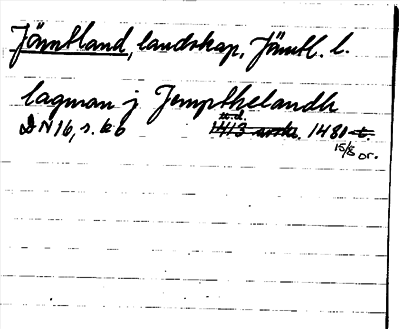 Jämtland, landskap, Jämtl. l.
lagman j Jempthelandh
DN 16, s. 260 1480
15/8 or.